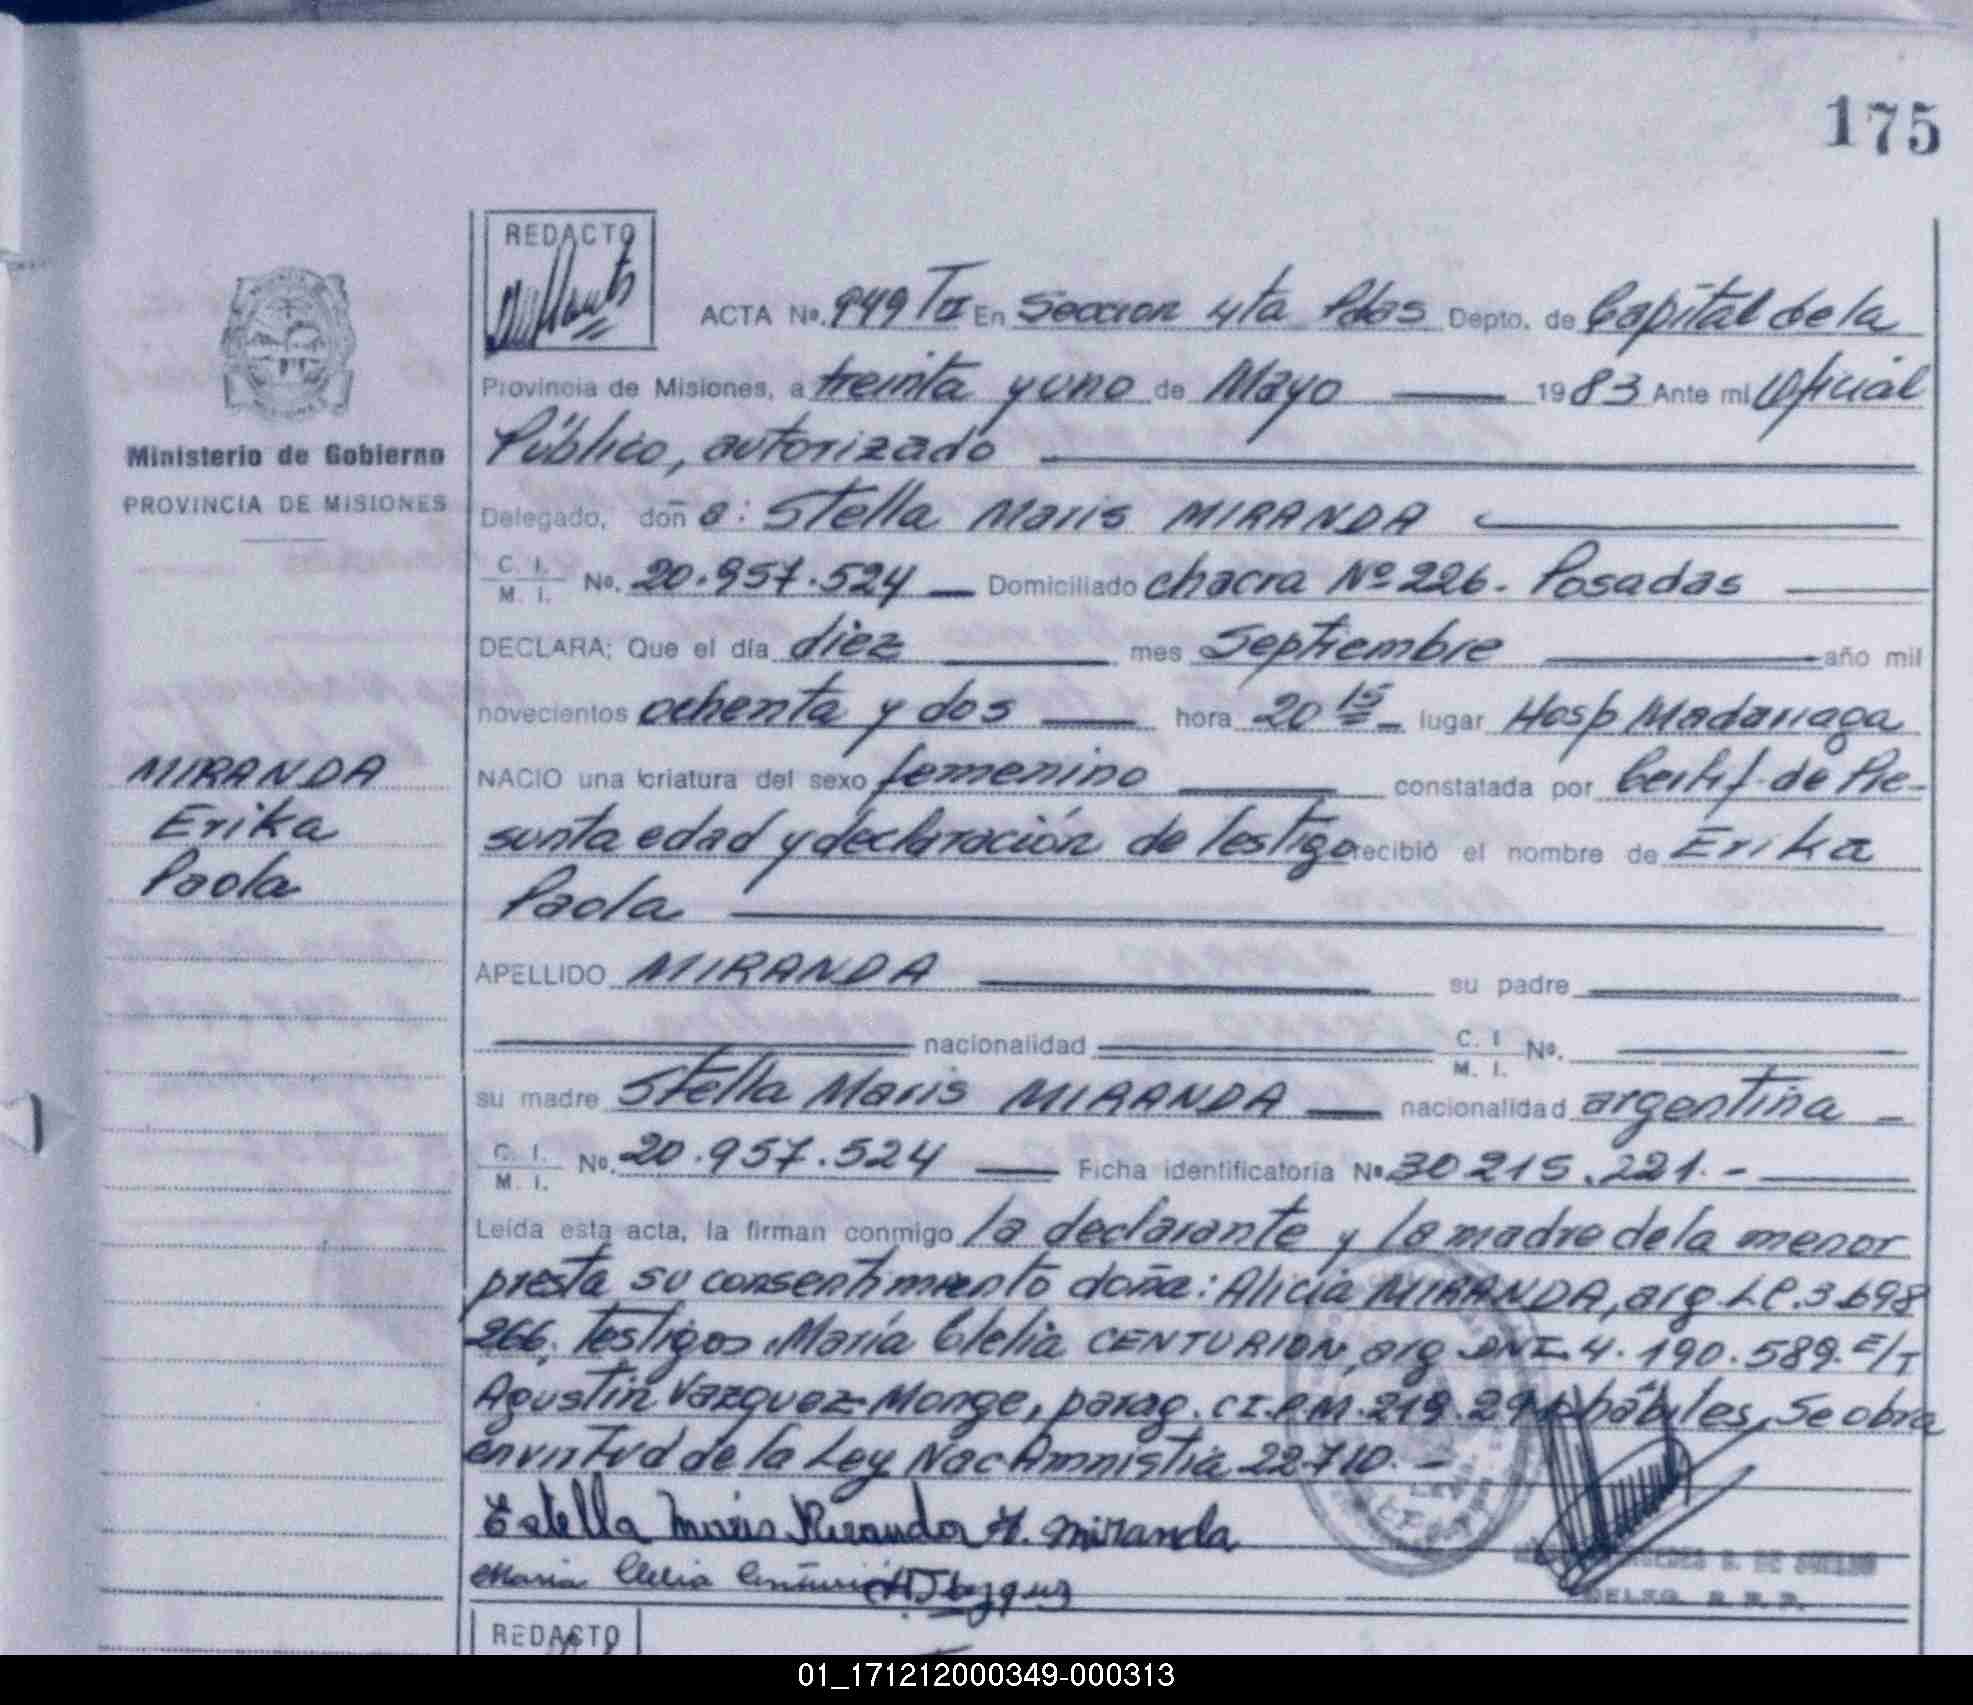 175
REDACTO
ACTA No. 949 TII En Seccion 4ta Pdas Depto. de Capital de la
Provincia de Misiones, a treinta y uno de Mayo 1983 Ante mi Oficial
Público, autorizado
Ministerio de Gobierno
PROVINCIA DE MISIONES
Delegado, doña: Stella Maris MIRANDA
C. I. M. I. No. 20.957.524 Domiciliado chacra Nº 226 - Posadas
DECLARA; Que el día diez mes Septiembre año mil
novecientos ochenta y dos hora 20 15 lugar Hosp Madariaga
MIRANDA
Erika
Paola
NACIO una criatura del sexo femenino constatada por Certif. de Pre-
sunta edad y declaración de testigo recibió el nombre de Erika
Paola
APELLIDO MIRANDA su padre
nacionalidad C. I M. I. No.
su madre Stella Maris MIRANDA nacionalidad argentina
C. I. M. I. No. 20.957.524 Ficha identificatoria No. 30 215.221.-
Leída esta acta, la firman conmigo la declarante y la madre de la menor
presta su consentimiento doña: Alicia MIRANDA, arg. LC. 3.698
266, Testigos María Clelia CENTURION, arg DNI. 4.190.589. E/T
Agustín Vazquez Monge, parag. CI.P.M. 219.29 hábiles, Se obra
en virtud de la Ley Nac Amnistia 22.710.-
Estella Maris Miranda A. Miranda
Maria Clelia Centurión
REDACTO
01_171212000349-000313